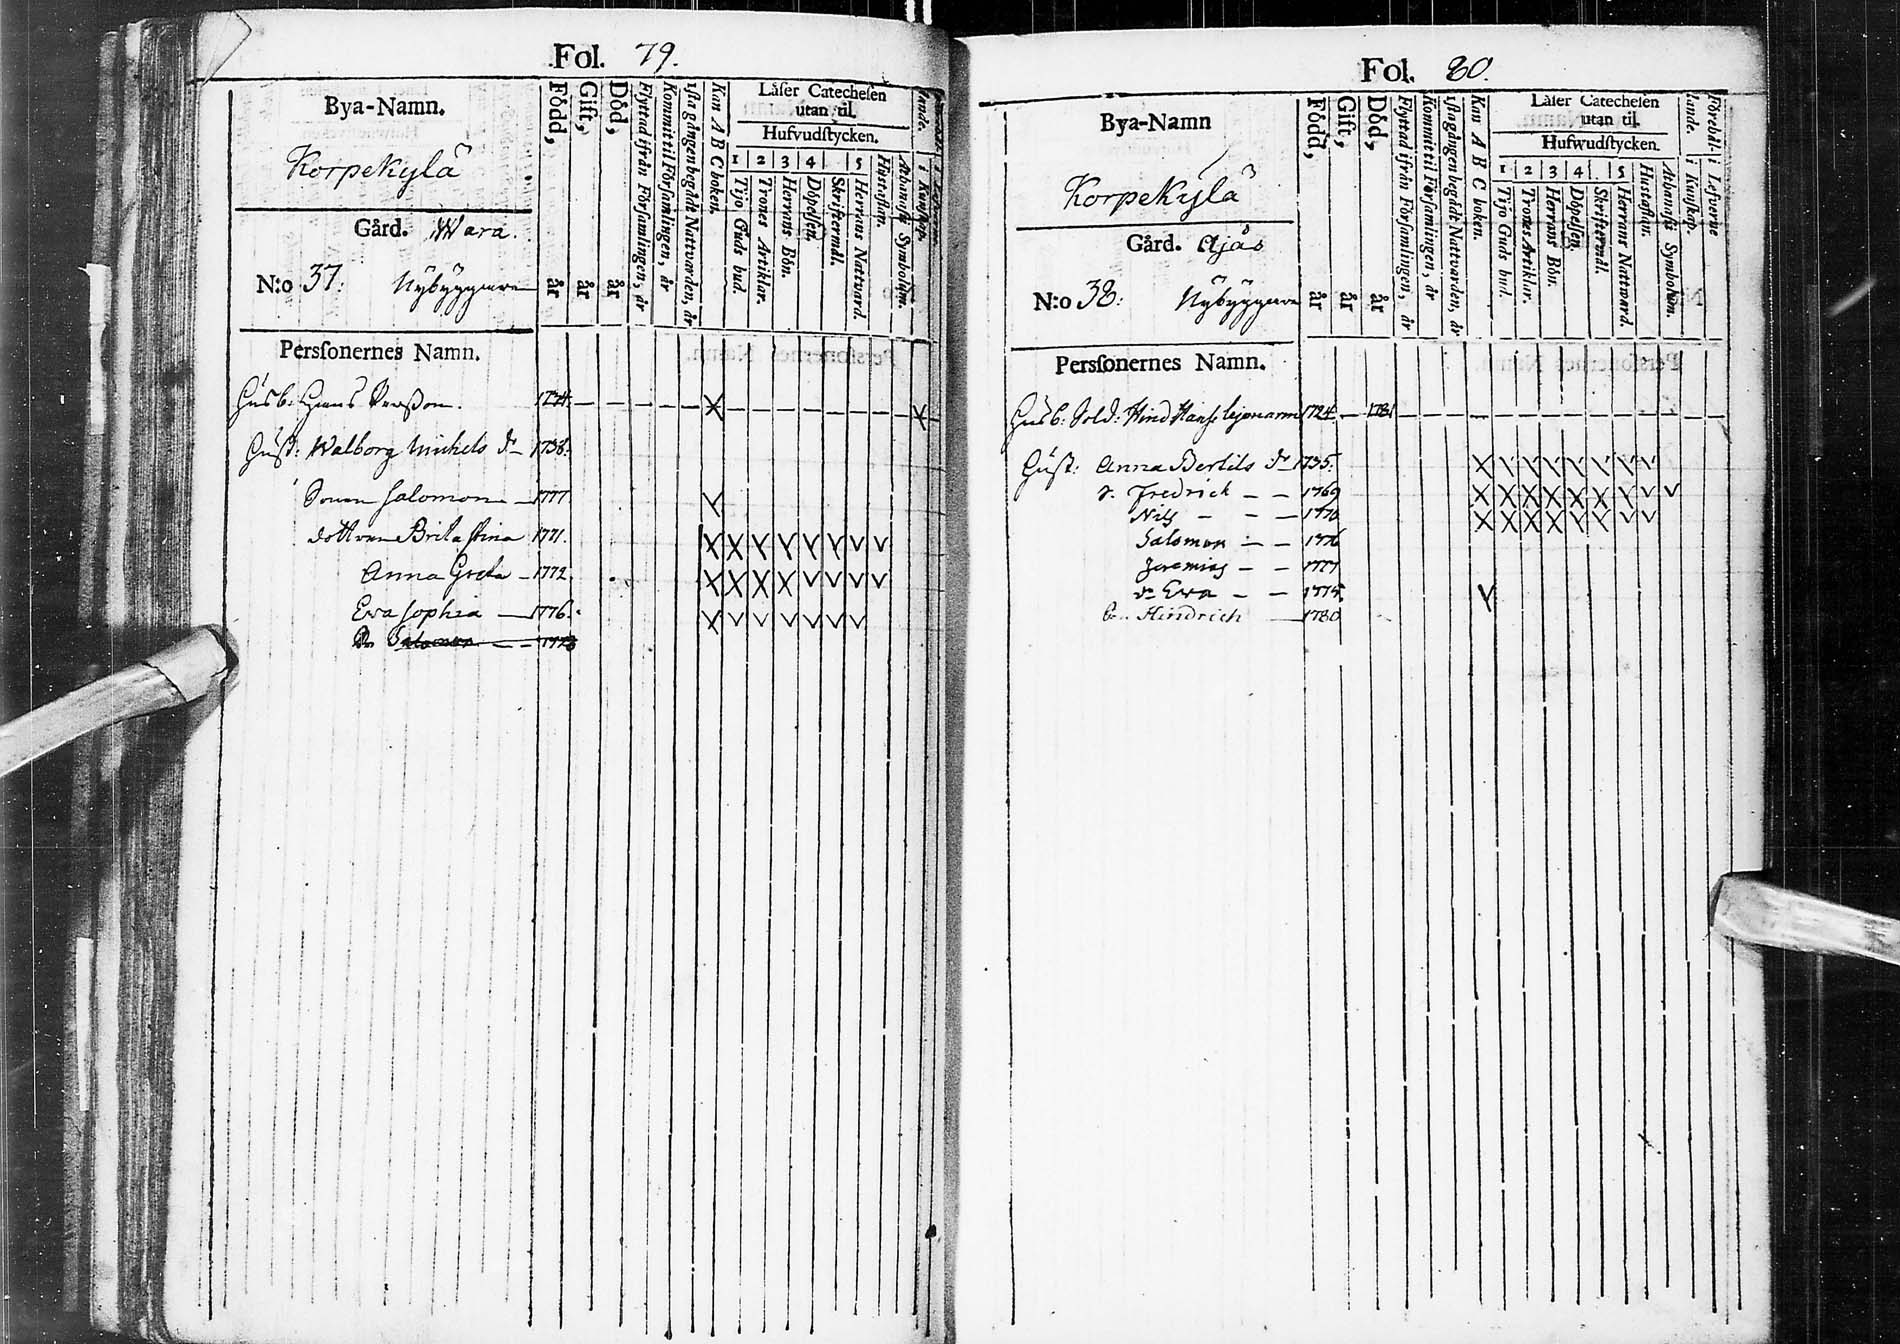 Fol. 79.
Bya-Namn.
Korpekylä
Gård. Wara.
N:o 37: Nybyggare
Perſonernes Namn.
Född, år
Gift, år
Död, år
Flyttad ifrån Förſamlingen, år
Kommit til Förſamlingen, år
1ſta gången begådt Nattvarden, år
Kan A B C boken.
Läſer Catecheſen
utan til.
Hufvudſtycken.
1 2 3 4 5
Tijo Guds bud.
Trones Artiklar.
Herrans Bön.
Döpelſen.
Skriftermål.
Herrans Nattvard.
Huſtaflan.
Athanaſii Symbolum.
Husb: Hans 1724.
Huſt: Walborg Michels dr 1738.
Sonen Salomon 1777
dottren Brita Stina 1771.
Anna Greta 1772.
Eva Sophia 1776.
Sn Salomon
Fol. 80.
Bya-Namn
Korpekylä
Gård. Ajås
N:o 38: Nybyggare
Perſonernes Namn.
Född, år
Gift, år
Död, år
Flyttad ifrån Förſamlingen, år
Kommit til Förſamlingen, år
1ſta gången begådt Nattvarden, år
Kan A B C boken.
Läſer Catecheſen
utan til.
Hufwudſtycken.
1 2 3 4 5
Tijo Guds bud.
Trones Artiklar.
Herrans Bön.
Döpelſen.
Skriftermål.
Herrans Nattvard.
Huſtaflan.
Athanaſii Symbolum.
Förehållande. i Kunſkap.
i Lefverne
Husb. Sold: Hind Hanſs 1724. 1781
Huſt: Anna Bertils dr 1735.
s. Fredrich 1769
Nils 1770
Salomon 1776
Jeremias 1777
dr Eva 1774.
Sn Hindrich 1780